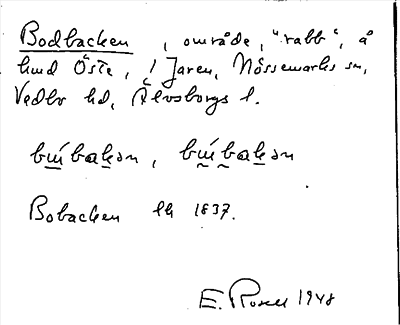 Bodbacken , område, "rabb", å
hmd Öste, i Jaren, Nössemarks sn,
Vedbo hd, Älvsborgs l.
bu̱´bak̠ən, bu̱´bak̠ən
Bobacken lk 1837.
E. Rosell 1948